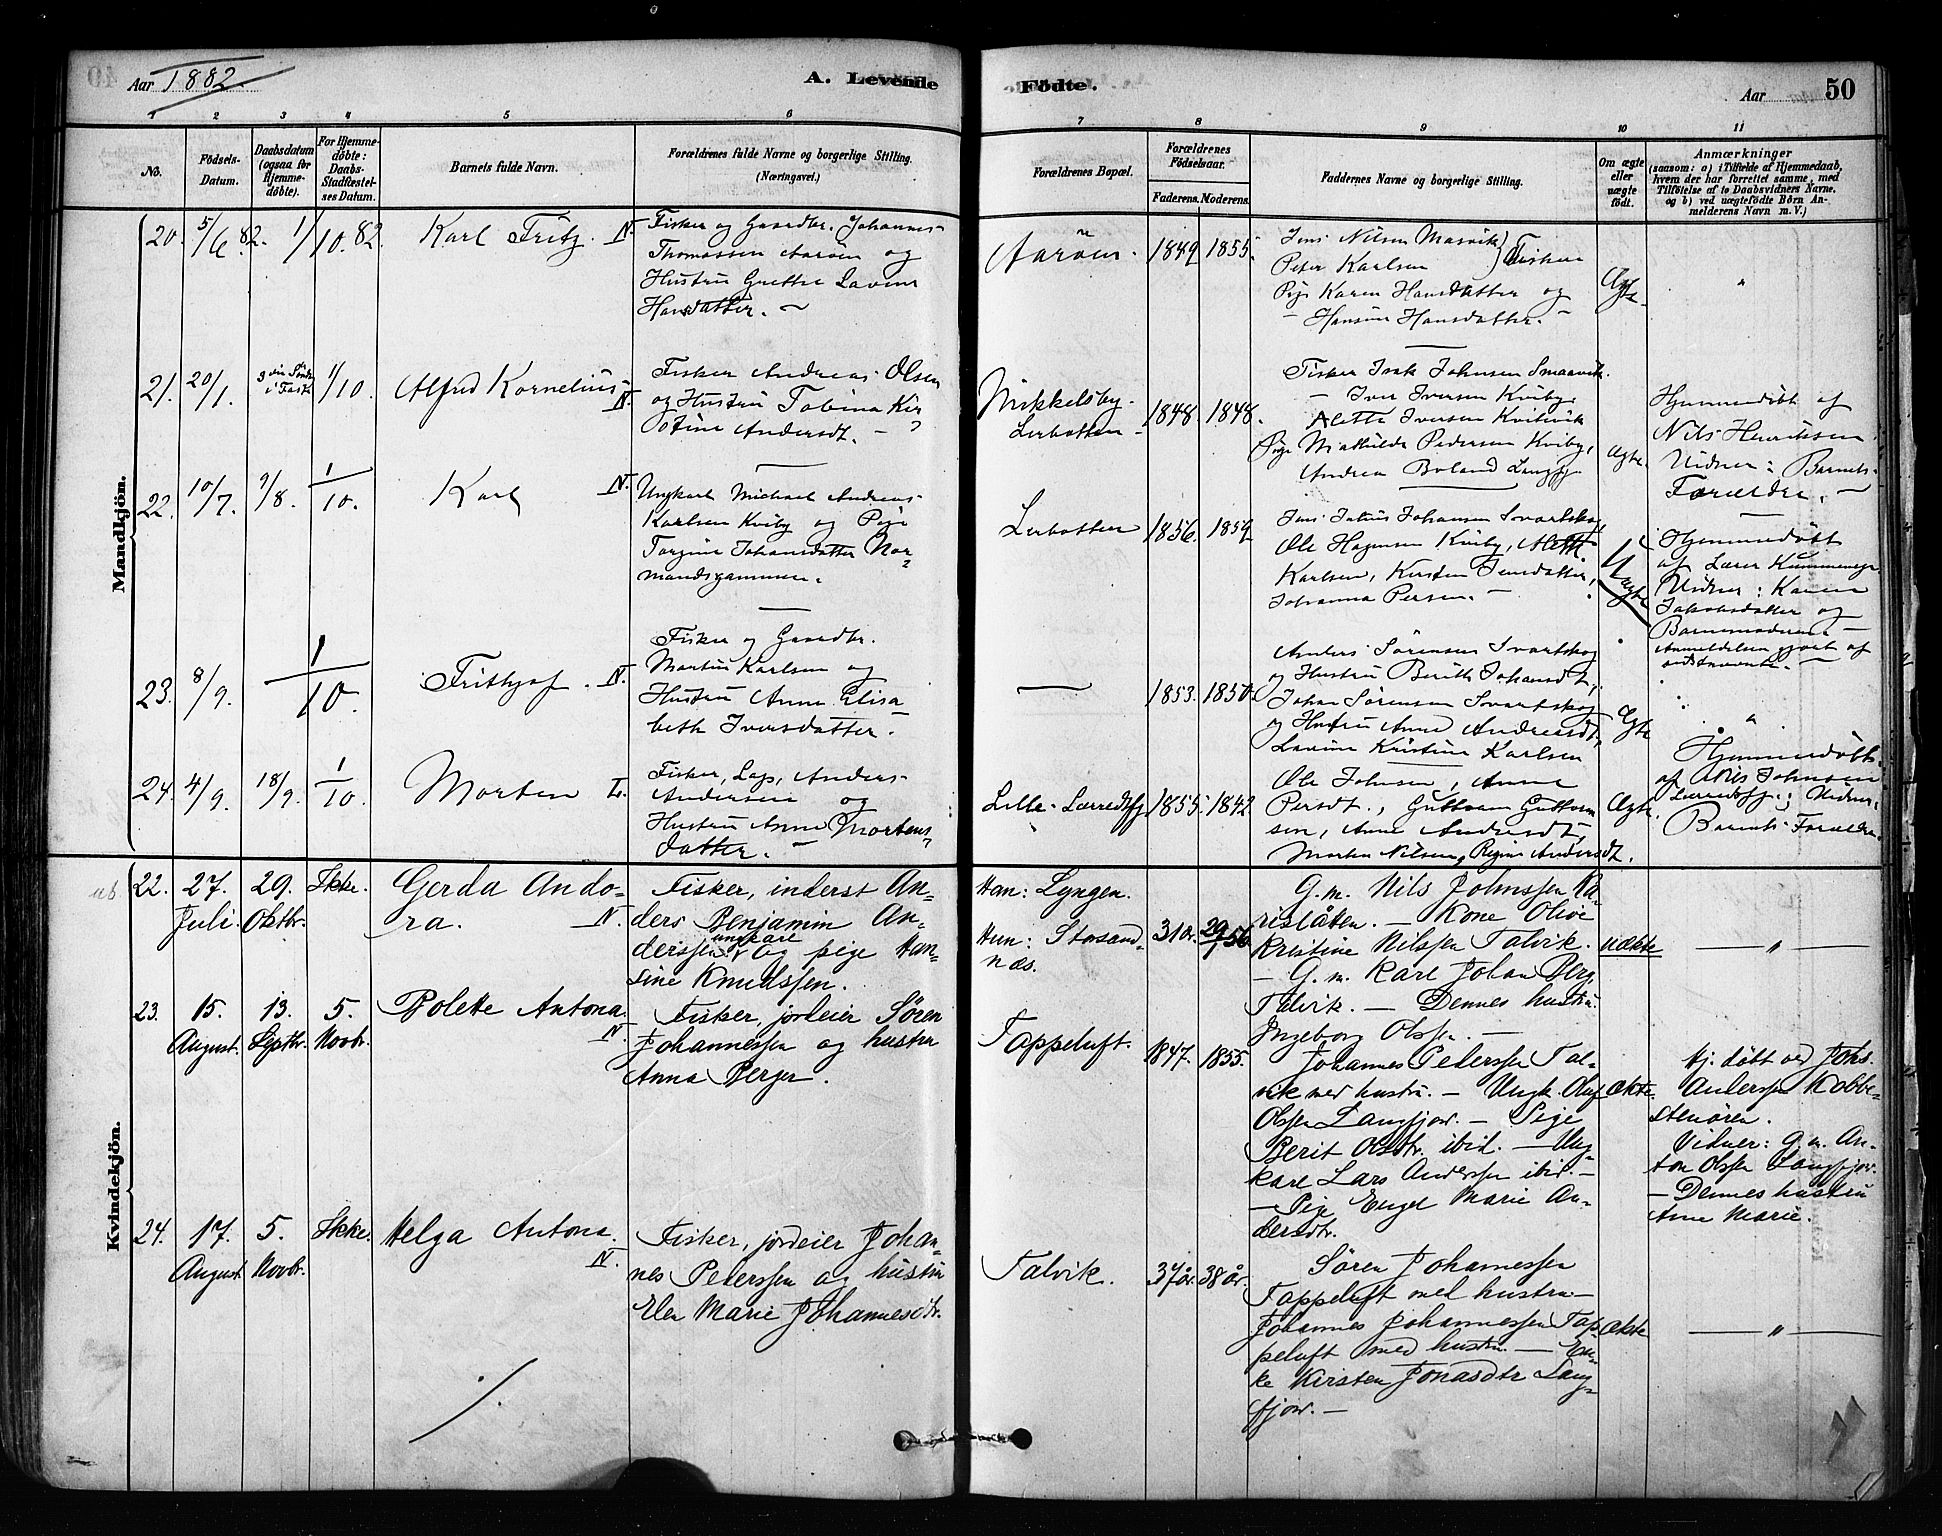 Aar 1882
A. Levende
Födte.
Aar
50
1 2 3 4 5 6 7 8 9 10 11
No.
Födsels-
Datum.
Daabsdatum
(ogsaa for
Hjemme-
döbte).
For Hjemme-
döbte:
Daabs-
Stadfæstel-
ses Datum.
Barnets fulde Navn.
Forældrenes fulde Navne og borgerlige Stilling.
(Næringsvei.)
Forældrenes Bopæl.
Forældrenes
Födselsaar.
Faderens. Moderens.
Faddernes Navne og borgerlige Stilling.
Om ægte
eller
uægte
födt.
Anmærkninger
(saasom: a) i Tilfælde af Hjemmedaab,
hvem der har forrettet samme, med
Tilföielse af to Daabsvidners Navne.
og b) ved uægtefödte Börn An-
melderens Navn m. V.)
Mandkjön.
20. 5/6 82. 1/10.82. Karl Fritz. N.
Fisker og Gaardbr. Johannes
Thomassen Aarøen og
Hustru Grethe Lavine
Hansdatter. –
Aarøen. 1849 1855.
Jens Nilsen Masvik
Peter Karlsen } Fiskere
Pige Karen Hansdatter og
– Hansine Hansdatter. –
Ægte. "
21. 20/1. i Faste 1/10. Alfred Kornelius. N.
Fisker Andreas Olsen
og Hustru Tobina Kir
stine Andersdt. –
Mikkelsby.
Lerbotten 1848. 1848.
Fisker Isak Johnsen Smaavik.
– Iver Iversen Kviby.
Alette Iversen Kvitvik
Pige Mathilde Pedersen Kviby,
Andrea Boland
Ægte.
Hjemmedöbt af
Nils Henriksen
Vidner: Barnets
Forældre. –
22. 10/7. 9/8. 1/10. Karl N.
Ungkarl Michael Andreas
Karlsen Kviby og Pige
Torgine Johansdatter Nor
mandsgammen.
Lerbotten 1856. 1859
Jens Julius Johansen Svartskog,
Ole Hagensen Kviby, Alette
Karlsen, Kirsten Jensdatter,
Johanna Persen. –
Uægte
Hjemmedöbt
af Lærer
Vidner: Karen
Jakobsdatter og
Barnemoderen –
Anmeldelsen gjort af
sidstnævnte. –
23. 8/9. 1/10. Frithjof. N.
Fisker og Gaardbr.
Martin Karlsen og
Hustru Anne Elisa
beth Iversdatter.
– 1853. 1850.
Anders Sörensen Svartskog
og Hustru Berith Johansdt.,
Johan Sörensen Svartskog
og Hustru Anne Andreasdt.,
Lavine Kristine Karlsen
Ægte "
24. 4/9. 18/9. 1/10. Morten L.
Fisker, Lap, Anders
Andersen og
Hustru Anne Mortens
datter. –
Lille-Lerredsfj 1855. 1842.
Ole Johnsen, Anne
Persdt., Guttorm Guttorm
sen, Anne Andersdt,
Morten Nilsen, Regine Andersdt.
Ægte.
Hjemmedöbt
af Nils Johnsen
Lerredsfj.; Vidner:
Barnets Forældre.
Kvindekjön.
22. 27. Juli. 29. Oktbr. Ikke. Gerda Ando-
ra. N.
Fisker, inderst An-
ders Benjamin An-
derssen ungkarl og pige Han-
sine Knudssen.
Han: Lyngen.
Hun: Storsand-
næs.
31 år. 29/7 56.
G.m. Nils Johnssen Ka-
rislåten. – Kone Olive
Kristine Nilssen Talvik.
– G.m. Karl Johan Berg,
Talvik. – Dennes hustru
Ingeborg Olssen. –
uækte – " –
23. 15. August. 13. Septbr. 5. Novbr. Bolette Antona. N.
Fisker, jordeier Søren
Johannessen og hustru
Anna Berger.
Tappeluft. 1847. 1855.
Johannes Pederssen Tal-
vik med hustru. – Ungk. Oluf
Olssen Langfjor. – Pige
Berit Olsdtr. ibid. – Ung-
karl Lars Anderssen ibid. –
– Pige Engel Marie An-
dersdtr.
ækte.
Hj. døbt ved Johs.
Anderssen Kobbe-
stenören.
Vidner: G.m. An-
ton Olssen Langfjor.
– Dennes hustru
Ane Marie.
24. 17. August. 5. Novbr. Ikke. Helga Antona. N.
Fisker, jordeier Johan-
nes Pederssen og hustru
Elen Marie Johannesdtr.
Talvik. 37 år. 38 år.
Søren Johannessen
Tappeluft med hustru –
Johannes Johannessen Tap-
peluft med hustru. – En-
ke Kirsten Jonasdtr Lang-
fjor. –
ækte – " –